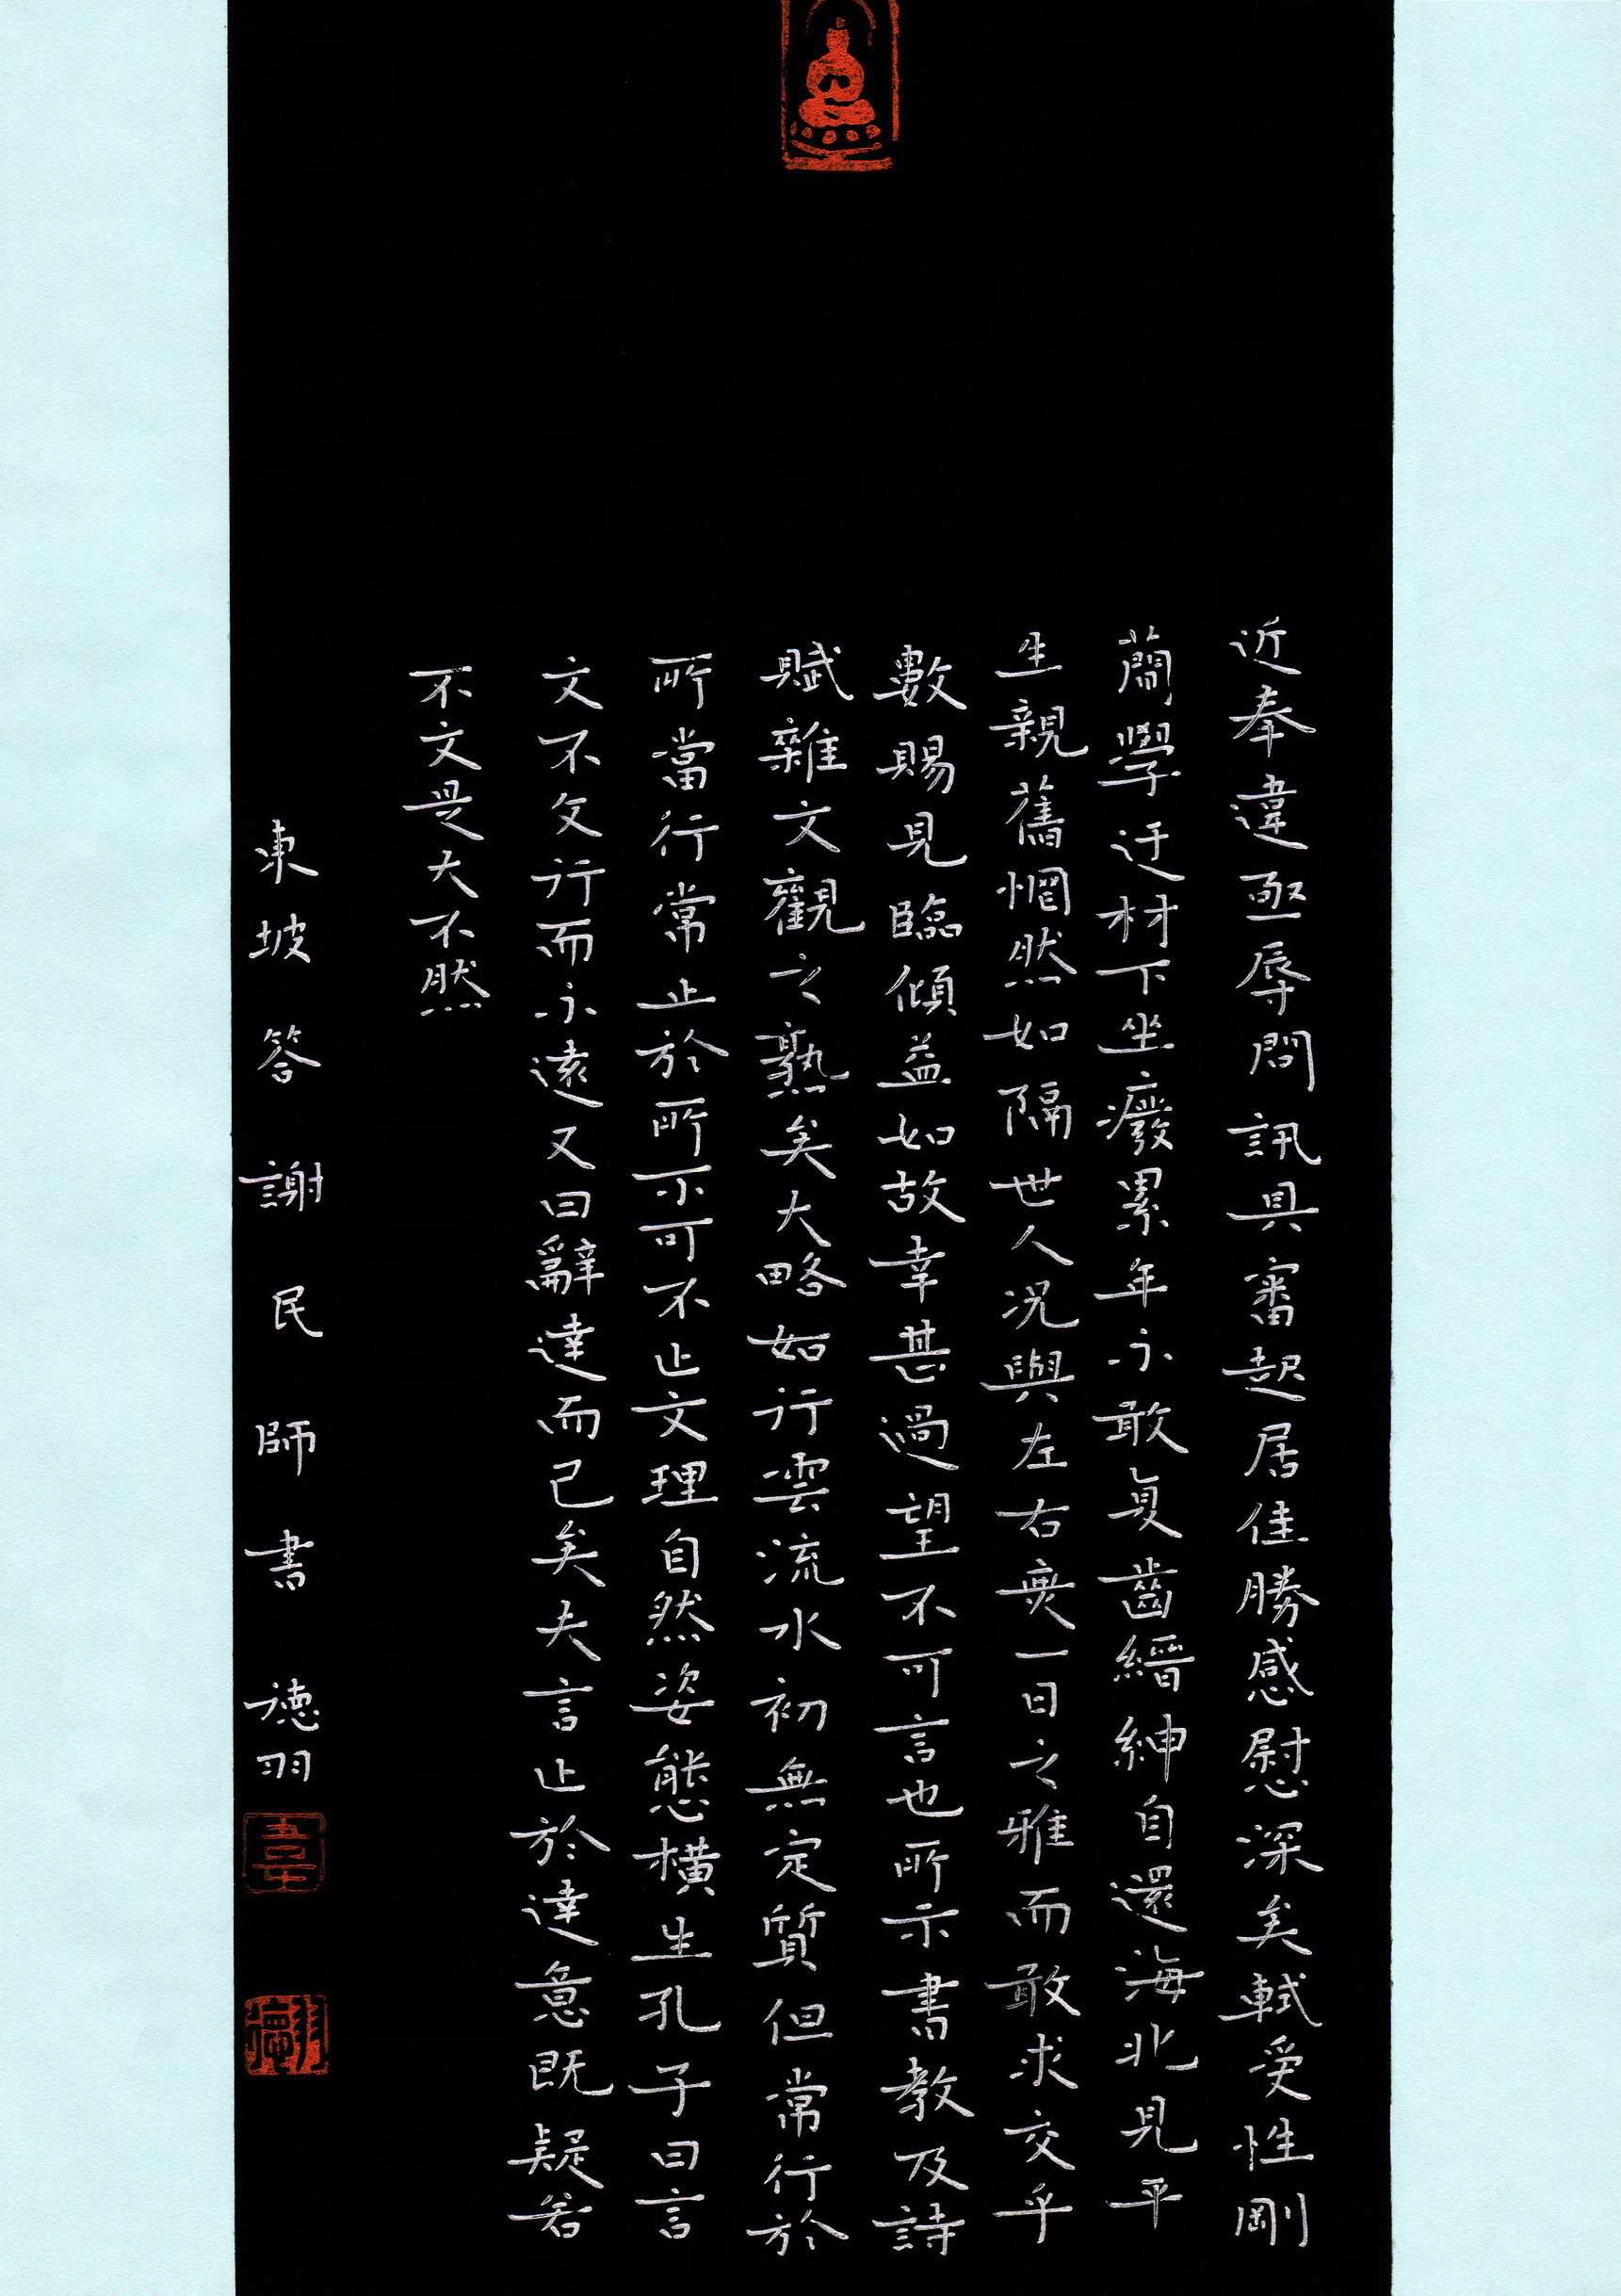 近奉違亟辱問訊具審起居佳勝感慰深矣軾受性剛
蕳學迂材下坐癈累年亦敢复齒縉紳自還海北見平
生親舊惘然如隔世人况與左右無一日之雅而敢求交乎
數賜見臨傾益如故幸甚過望不可言也所示書教及詩
賦雜文觀之熟矣大略如行雲流水初無定質但常行於
所當行常止於所不可不止文理自然姿態橫生孔子曰言
文不文行而不遠又曰辭達而已矣夫言止於達意既疑若
不文是大不然
東坡答謝民師書 德羽